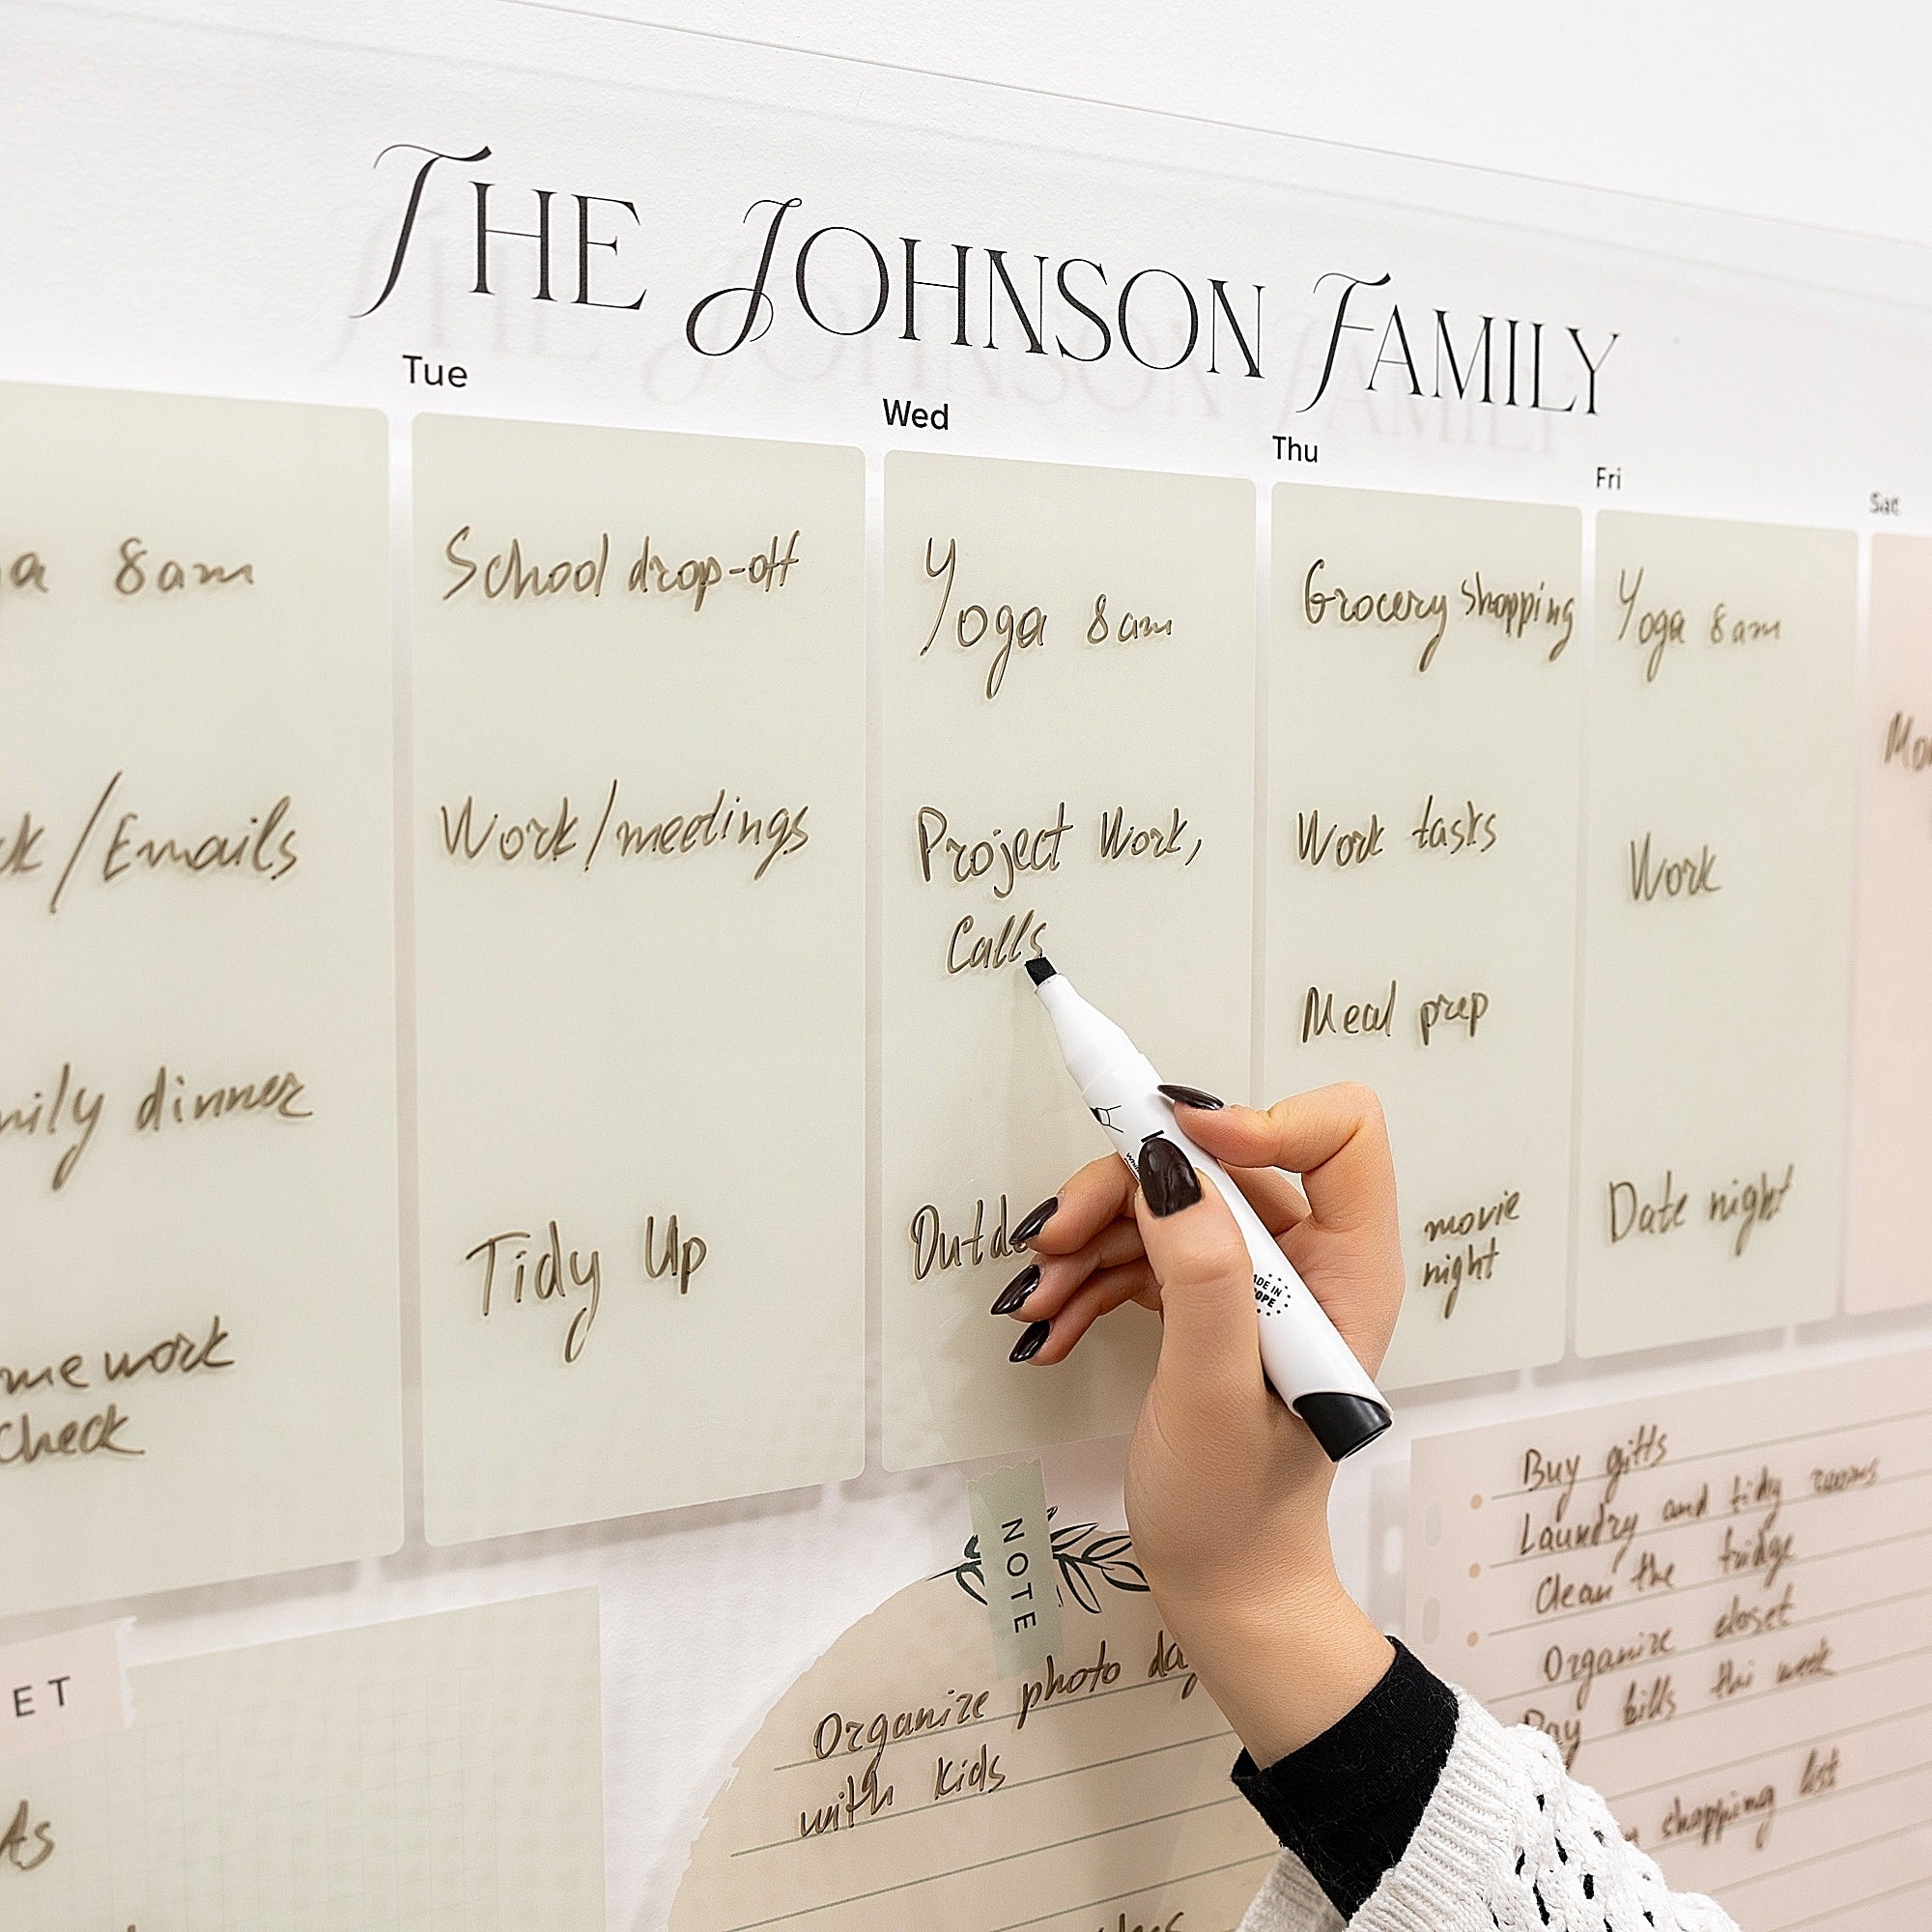 THE JOHNSON FAMILY
Tue
Wed
Thu
Fri
Sat
8am
/Emails
dinner
work
check
School drop-off
Work/meetings
Tidy Up
Yoga 8am
Project Work,
Calls
Grocery shopping
Work tasks
Meal prep
movie
night
Yoga 8am
Work
Date night
NOTE
Organize photo
with kids
Buy gifts
Laundry and tidy rooms
Clean the fridge
Organize closet
Pay bills this week
shopping list